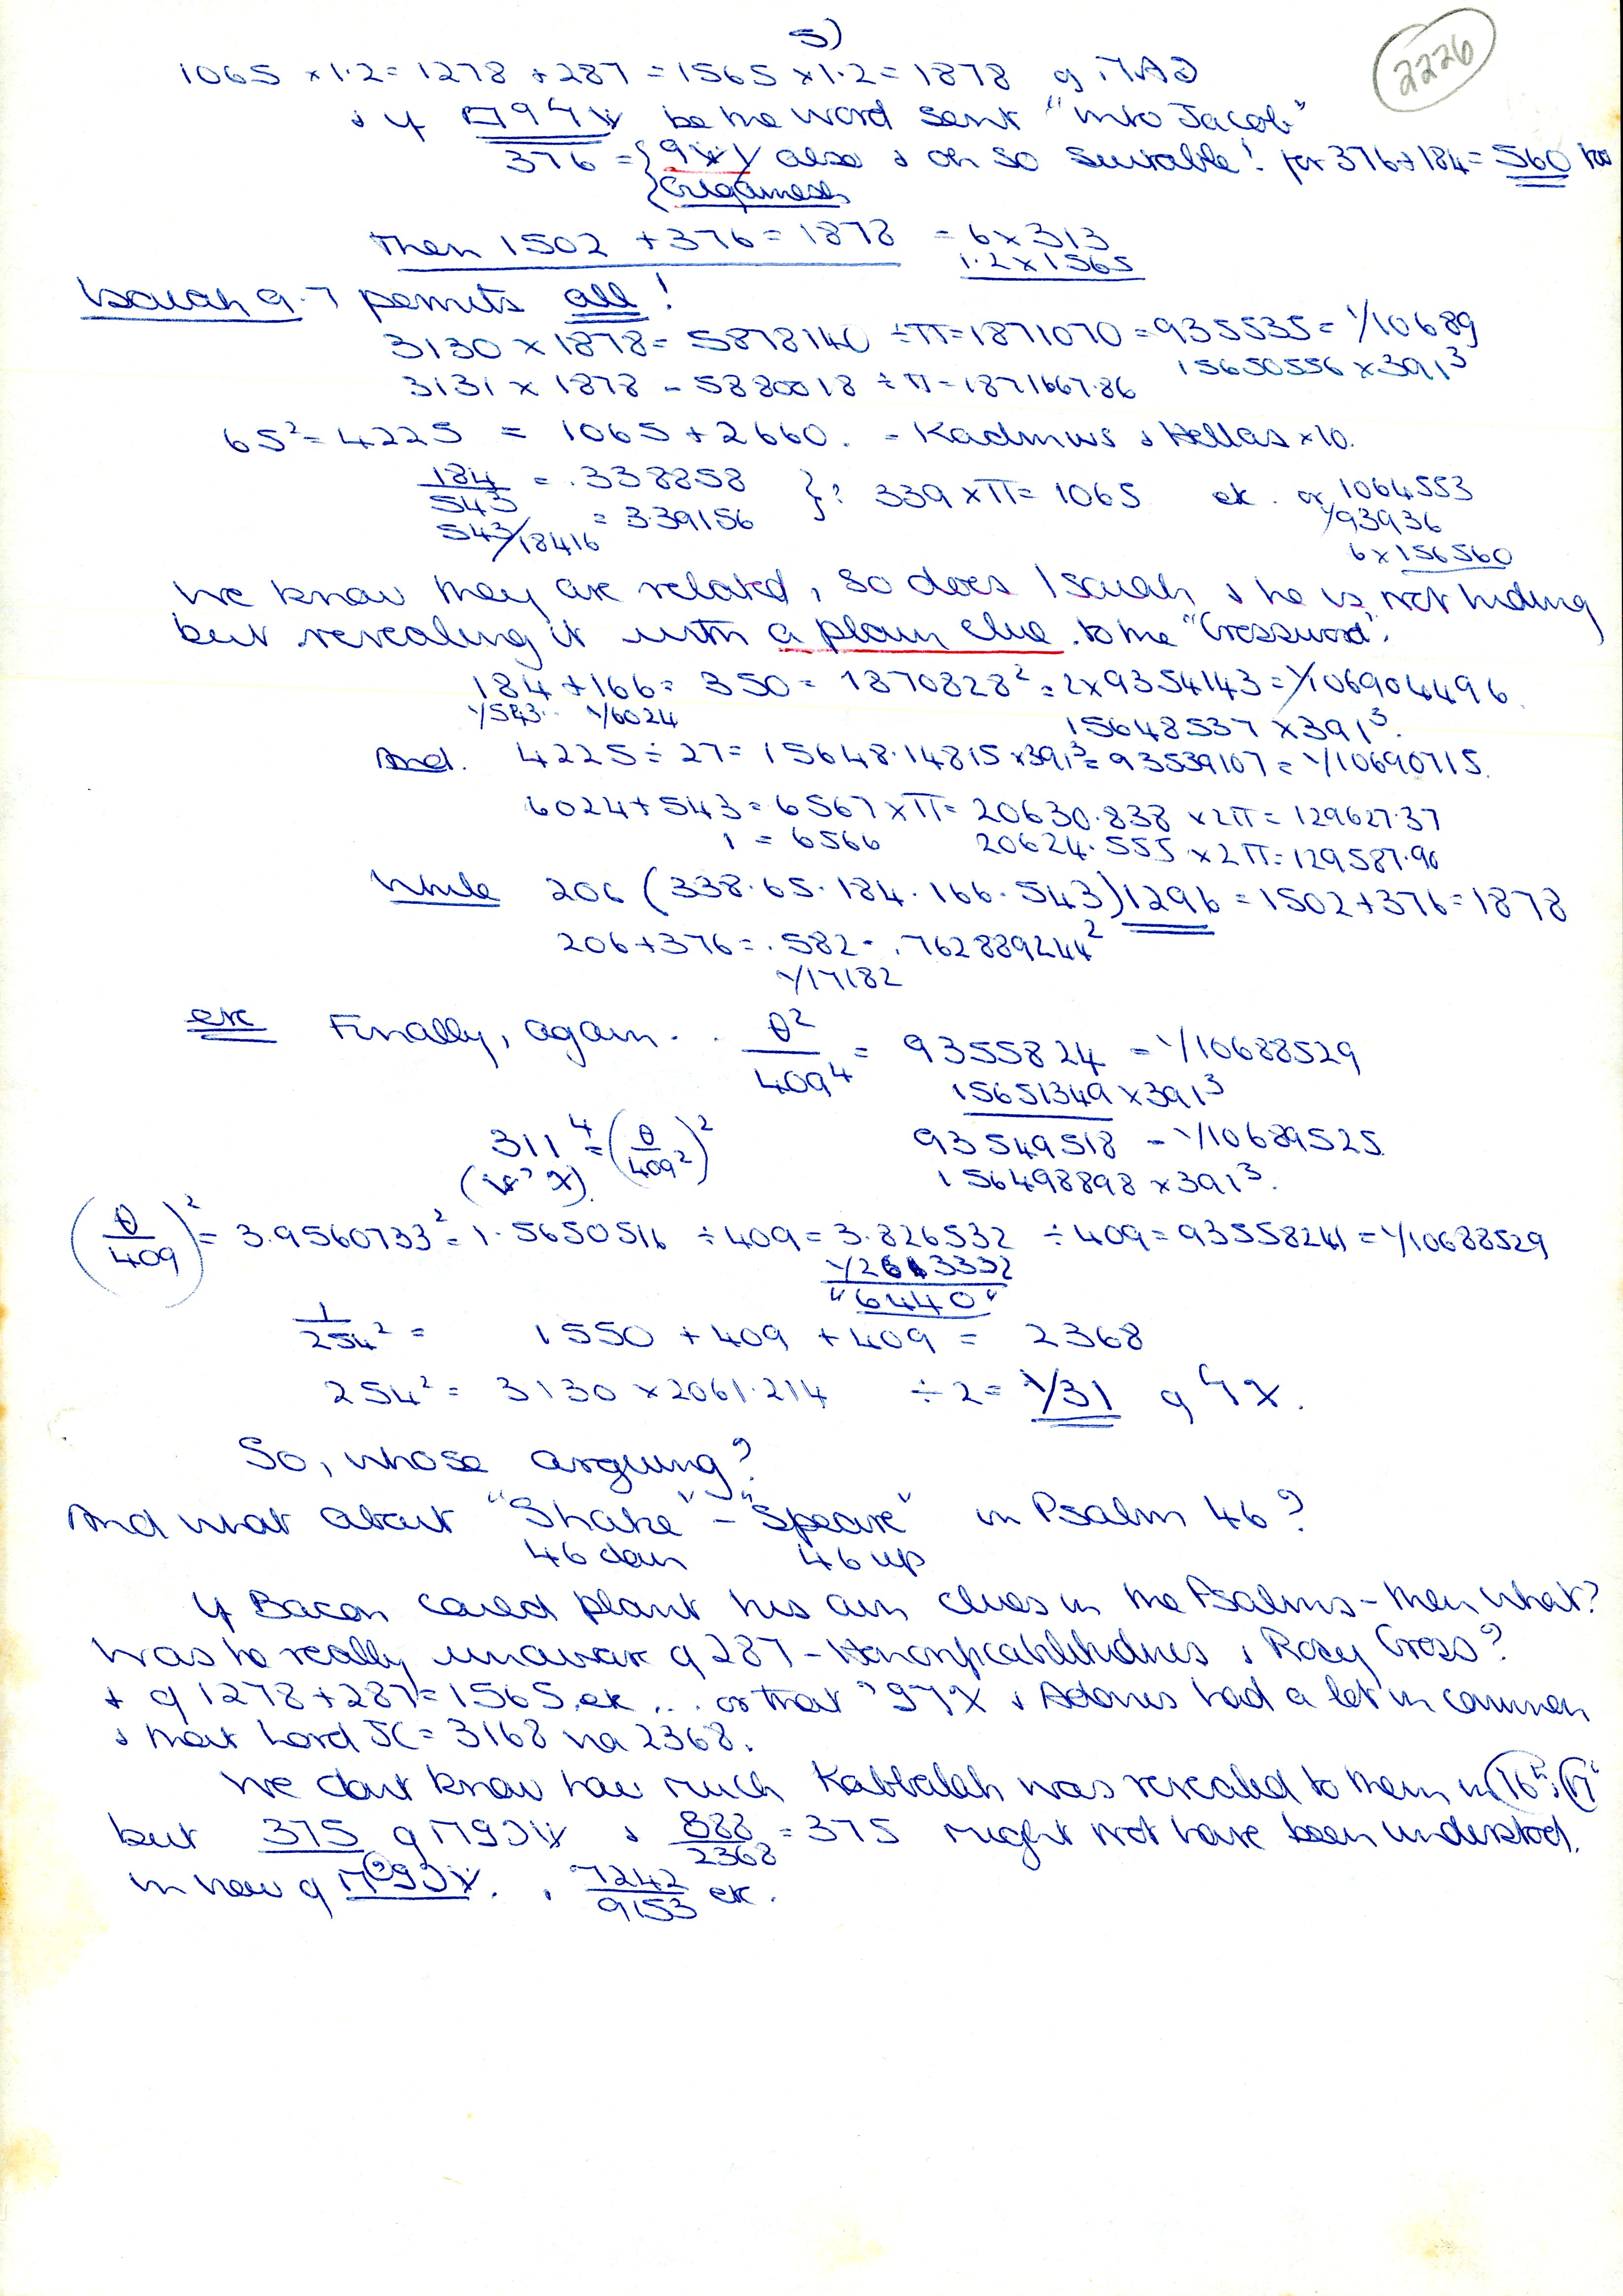 5)
2226
1065 × 1.2 = 1278 + 287 = 1565 × 1.2 = 1878
be the word sent "into Jacob"
376 = also & oh so suitable! for 376 + 184 = 560 too
Gilgamesh
Then 1502 + 376 = 1878 = 6 × 313
1.2 × 1565
Isaiah 9.7 permits all!
3130 × 1878 = 5878140 ÷ π = 1871070 = 935535 = 1/10689
15650556 × 391³
3131 × 1878 = 5880018 ÷ π = 1871667.86
65² = 4225 = 1065 + 2660. = Kadmus & Hellas × 10.
184/543 = .338858 }? 339 × π = 1065 etc. or 1064553
543/18416 = 3.39156 1/93936
6 × 156560
We know they are related, so does Isaiah & he is not hiding
but revealing it with a plain clue to the "Crossword".
184 + 166 = 350 = 1870828² = 2 × 9354143 = 1/106904496.
1/543.. 1/6024 15648537 × 391³.
And. 4225 ÷ 27 = 15648.14815 × 391³ = 93539107 = 1/10690715.
6024 + 543 = 6567 × π = 20630.838 × 2π = 129627.37
1 = 6566 20624.555 × 2π = 129587.96
While 206 (338.65.184.166.543) 1296 = 1502 + 376 = 1878
206 + 376 = .582 = .762889244²
1/17182
etc Finally, again.. θ²/409⁴ = 9355824 = 1/10688529
15651349 × 391³
311⁴ = (θ/409²)² 93549518 = 1/10689525
156498898 × 391³.
(θ/409)² = 3.9560733² = 1.5650516 ÷ 409 = 3.826532 ÷ 409 = 93558241 = 1/10688529
1/2613332
"6440"
1/254² = 1550 + 409 + 409 = 2368
254² = 3130 × 2061.214 ÷ 2 = 1/31
So, whose arguing?
And what about "Shake" – "Speare" in Psalm 46?
46 down 46 up
If Bacon could plant his own clues in the Psalms – then what?
Was he really unaware of 287 – & Rosy Cross?
& of 1278 + 287 = 1565 etc... or that & Adonis had a lot in common
& that Lord JC = 3168 via 2368.
We don't know how much Kabbalah was revealed to them in 16th, 17th
but 375 of & 888/2368 = 375 might not have been understood.
in view of . & 7242/9153 etc.